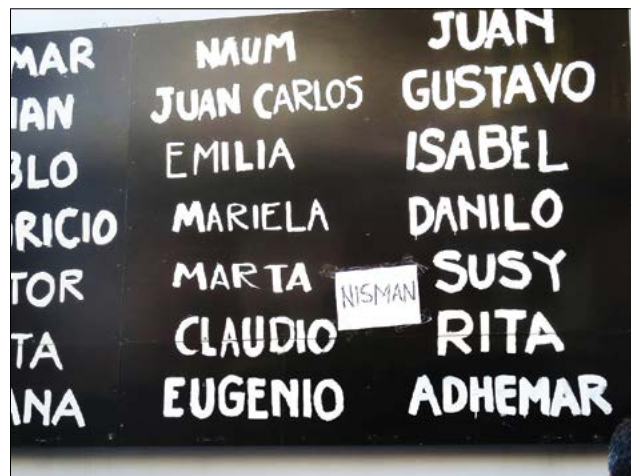 MAR
IAN
BLO
RICIO
TOR
TA
ANA
NAUM
JUAN CARLOS
EMILIA
MARIELA
MARTA
CLAUDIO
EUGENIO
NISMAN
JUAN
GUSTAVO
ISABEL
DANILO
SUSY
RITA
ADHEMAR